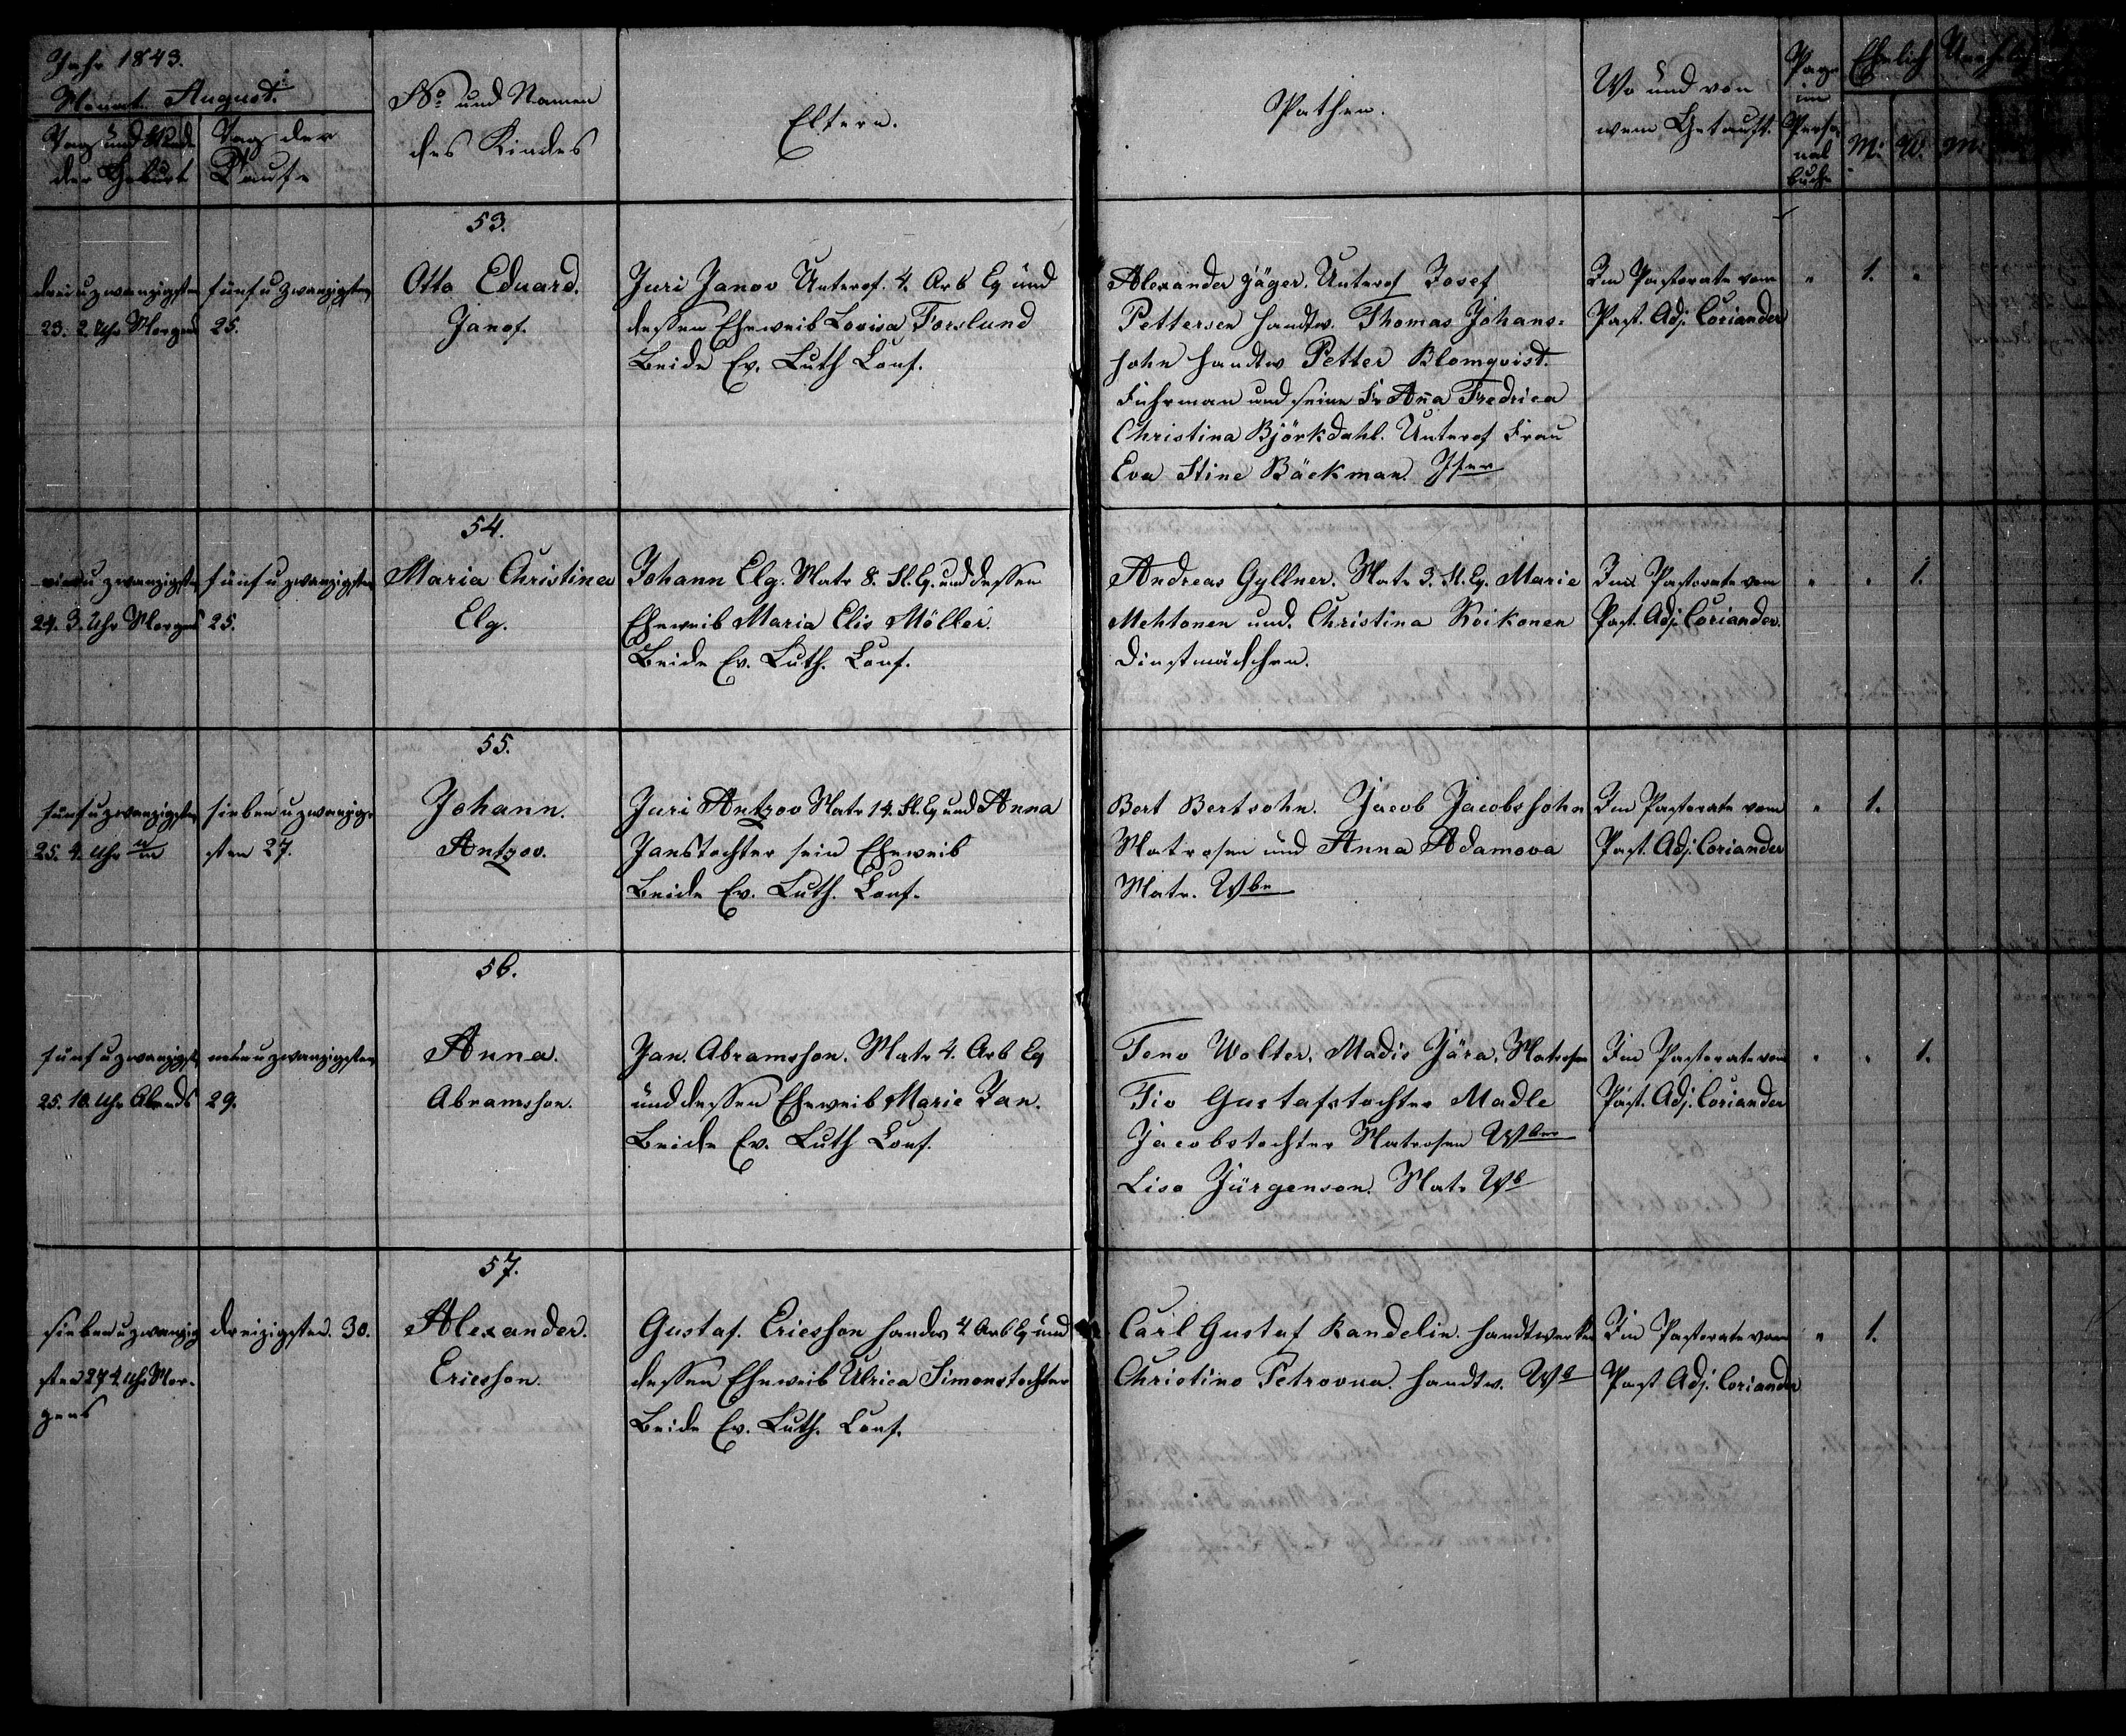 Jahr 1843.
Monat August.
Tag und Stunde der Geburt
Tag der Taufe
No und Namen des Kindes
Eltern.
Pathen.
Wo und von wem Getauft.
Page im Personalbuche
Ehelich
M. W. M.
53.
dreiuzwanzigsten
23. 2 Uhr Morgens
fünfuzwanzigsten
25.
Otto Eduard.
Janof.
Juri Janov Unterof. 4. Arb Eq und
dessen Eheweib Lovisa Forslund
Beide Ev. Luth Conf.
Alexander Jäger. Unterof Josef
Pettersen Handtw. Thomas Johans-
sohn Handtw Petter Blomqvist.
Fuhrman und seine Fr Anna Fredrica
Christina Björkdahl. Unterof Frau
Eva Stine Bäckman. Jfer
Im Pastorate vom
Past. Adj. Coriander
" 1. "
54.
vieruzwanzigsten
24. 3. Uhr Morgens
fünfuzwanzigsten
25.
Maria Christina
Elg.
Johann Elg. Matr 8. Fl. Eq. und dessen
Eheweib Maria Elis Möller.
Beide Ev. Luth. Conf.
Andreas Gyllner. Matr 3. Fl. Eq. Marie
Mehtonen und Christina Roikonen
Dinstmädchen.
Im Pastorate vom
Past. Adj. Coriander.
" " 1.
55.
fünfuzwanzigsten
25. 4. Uhr
siebenuzwanzig-
sten 27.
Johann.
Antzov.
Juri Antzov Matr 14. Fl. Eq und Anna
Janstochter sein Eheweib
Beide Ev. Luth. Conf.
Bert Bertsohn. Jacob Jacobssohn
Matrosen und Anna Adamova
Matr. Wbn
Im Pastorate vom
Past. Adj. Coriander
" 1.
56.
fünfuzwanzigst
25. 10. Uhr Abends
neunuzwanzigsten
29.
Anna.
Abramsson.
Jan. Abramsson. Matr 4. Arb Eq
und dessen Eheweib Marie Jan.
Beide Ev. Luth Conf.
Teno Wolter. Madis Jära. Matrosen
Tio Gustafstochter Madle
Jacobstochter Matrosen Wber
Liso Jürgenson. Matr Wb
Im Pastorate vom
Past. Adj. Coriander
" " 1.
57.
siebenuzwanzig
sten 27 4 Uhr Mor-
gens
dreizigsten. 30.
Alexander.
Ericsson.
Gustaf. Ericsson Handw 4 Arb Eq und
dessen Eheweib Ulrica Simonstochter
Beide Ev. Luth. Conf.
Carl Gustaf Kandelin. Handtwerker
Christino Petrovna. Handtw. Wb
Im Pastorate vom
Past Adj. Coriander
" 1.